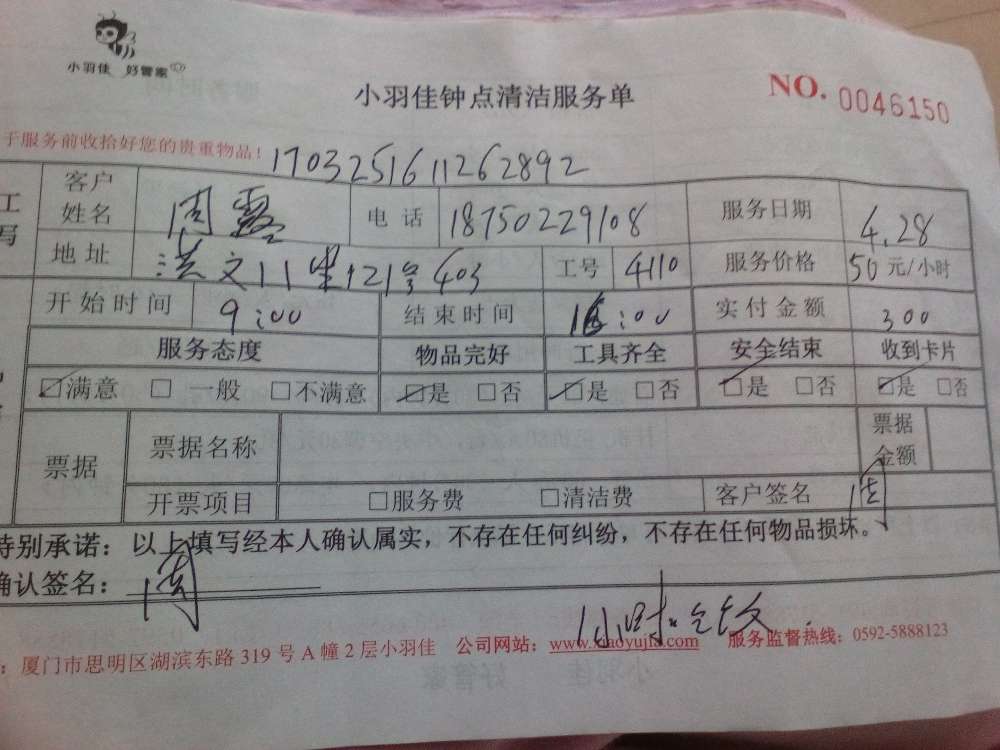 小羽佳 好管家
小羽佳钟点清洁服务单
NO. 0046150
于服务前收拾好您的贵重物品!
1703251611262892
工 客户姓名 周露 电话 18750229108 服务日期 4.28
写 地址 洪文11里121号403 工号 4110 服务价格 50元/小时
开始时间 9:00 结束时间 16:00 实付金额 300
服务态度 物品完好 工具齐全 安全结束 收到卡片
☑满意 □一般 □不满意 ☑是 □否 ☑是 □否 ☑是 □否 ☑是 □否
票据 票据名称 票据金额
开票项目 □服务费 □清洁费 客户签名 周
特别承诺:以上填写经本人确认属实,不存在任何纠纷,不存在任何物品损坏。
确认签名: 周
小时
:厦门市思明区湖滨东路 319 号 A 幢 2 层小羽佳 公司网站:www.xiaoyujia.com 服务监督热线:0592-5888123